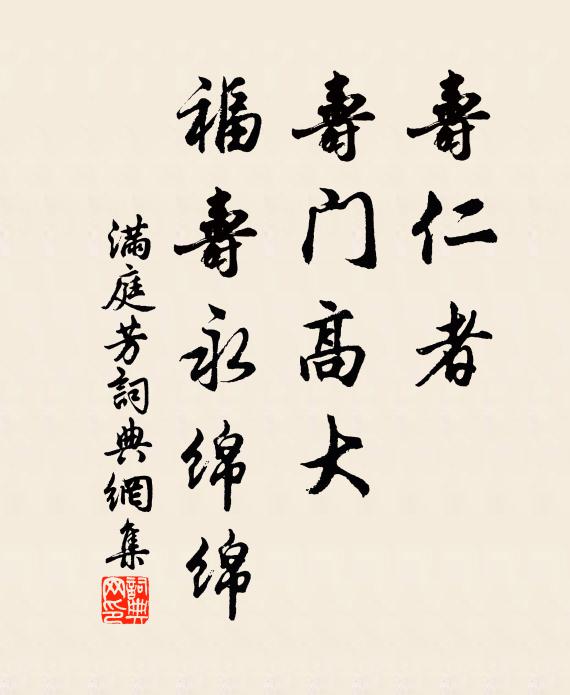 壽仁者
壽门高大
福壽永绵绵
满庭芳詞典網集
詞典網印